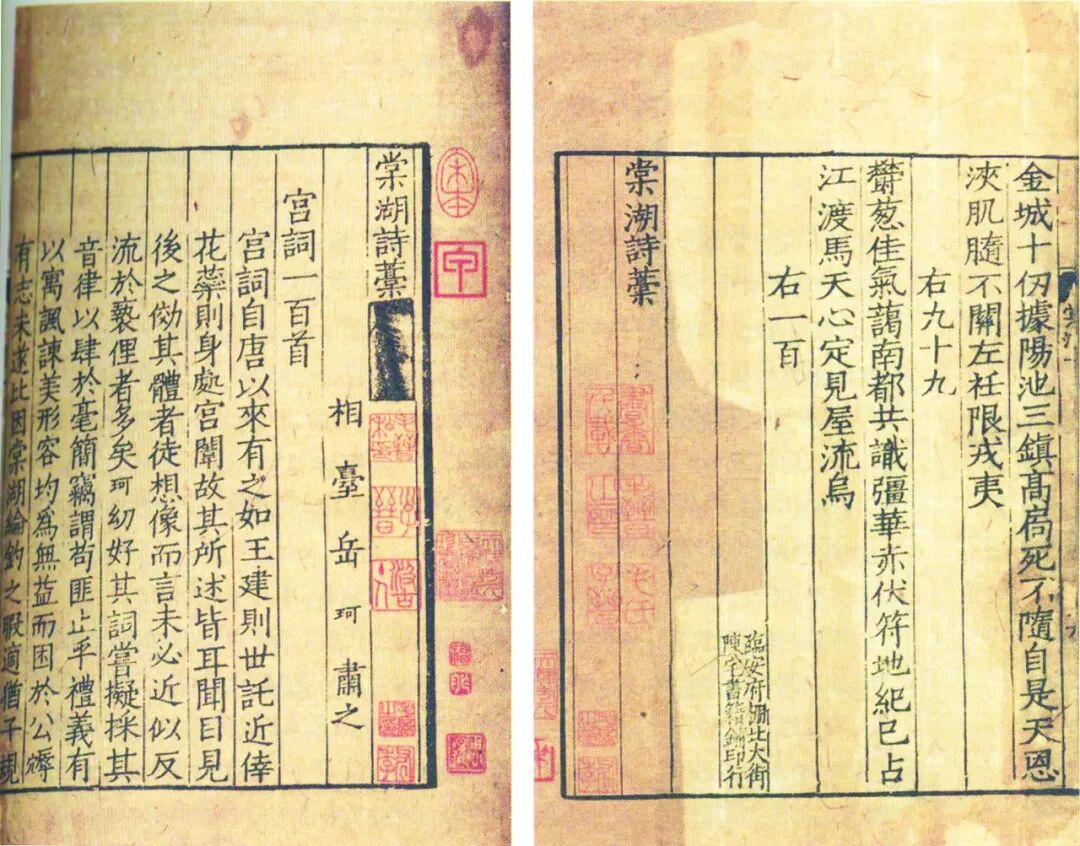 棠湖詩藁
相臺岳珂肅之
宫詞一百首
宫詞自唐以來有之如王建則世託近倖
花蘂則身處宫闈故其所述皆耳聞目見
後之傚其體者徒想像而言未必近似反
流於褻俚者多矣珂幼好其詞嘗擬採其
音律以肆於毫簡竊謂苟匪止乎禮義有
以寓諷諫美形容均為無益而困於公㯺
有志未遂比因棠湖綸釣之暇適猶子規
金城十仞據陽池三鎮髙扃死不隨自是天恩
浹肌髓不關左衽限戎夷
右九十九
欎葱佳氣藹南都共識彊華赤伏符地紀已占
江渡馬天心定見屋流烏
右一百
臨安府棚北大街
陳宅書籍鋪印行
棠湖詩藁